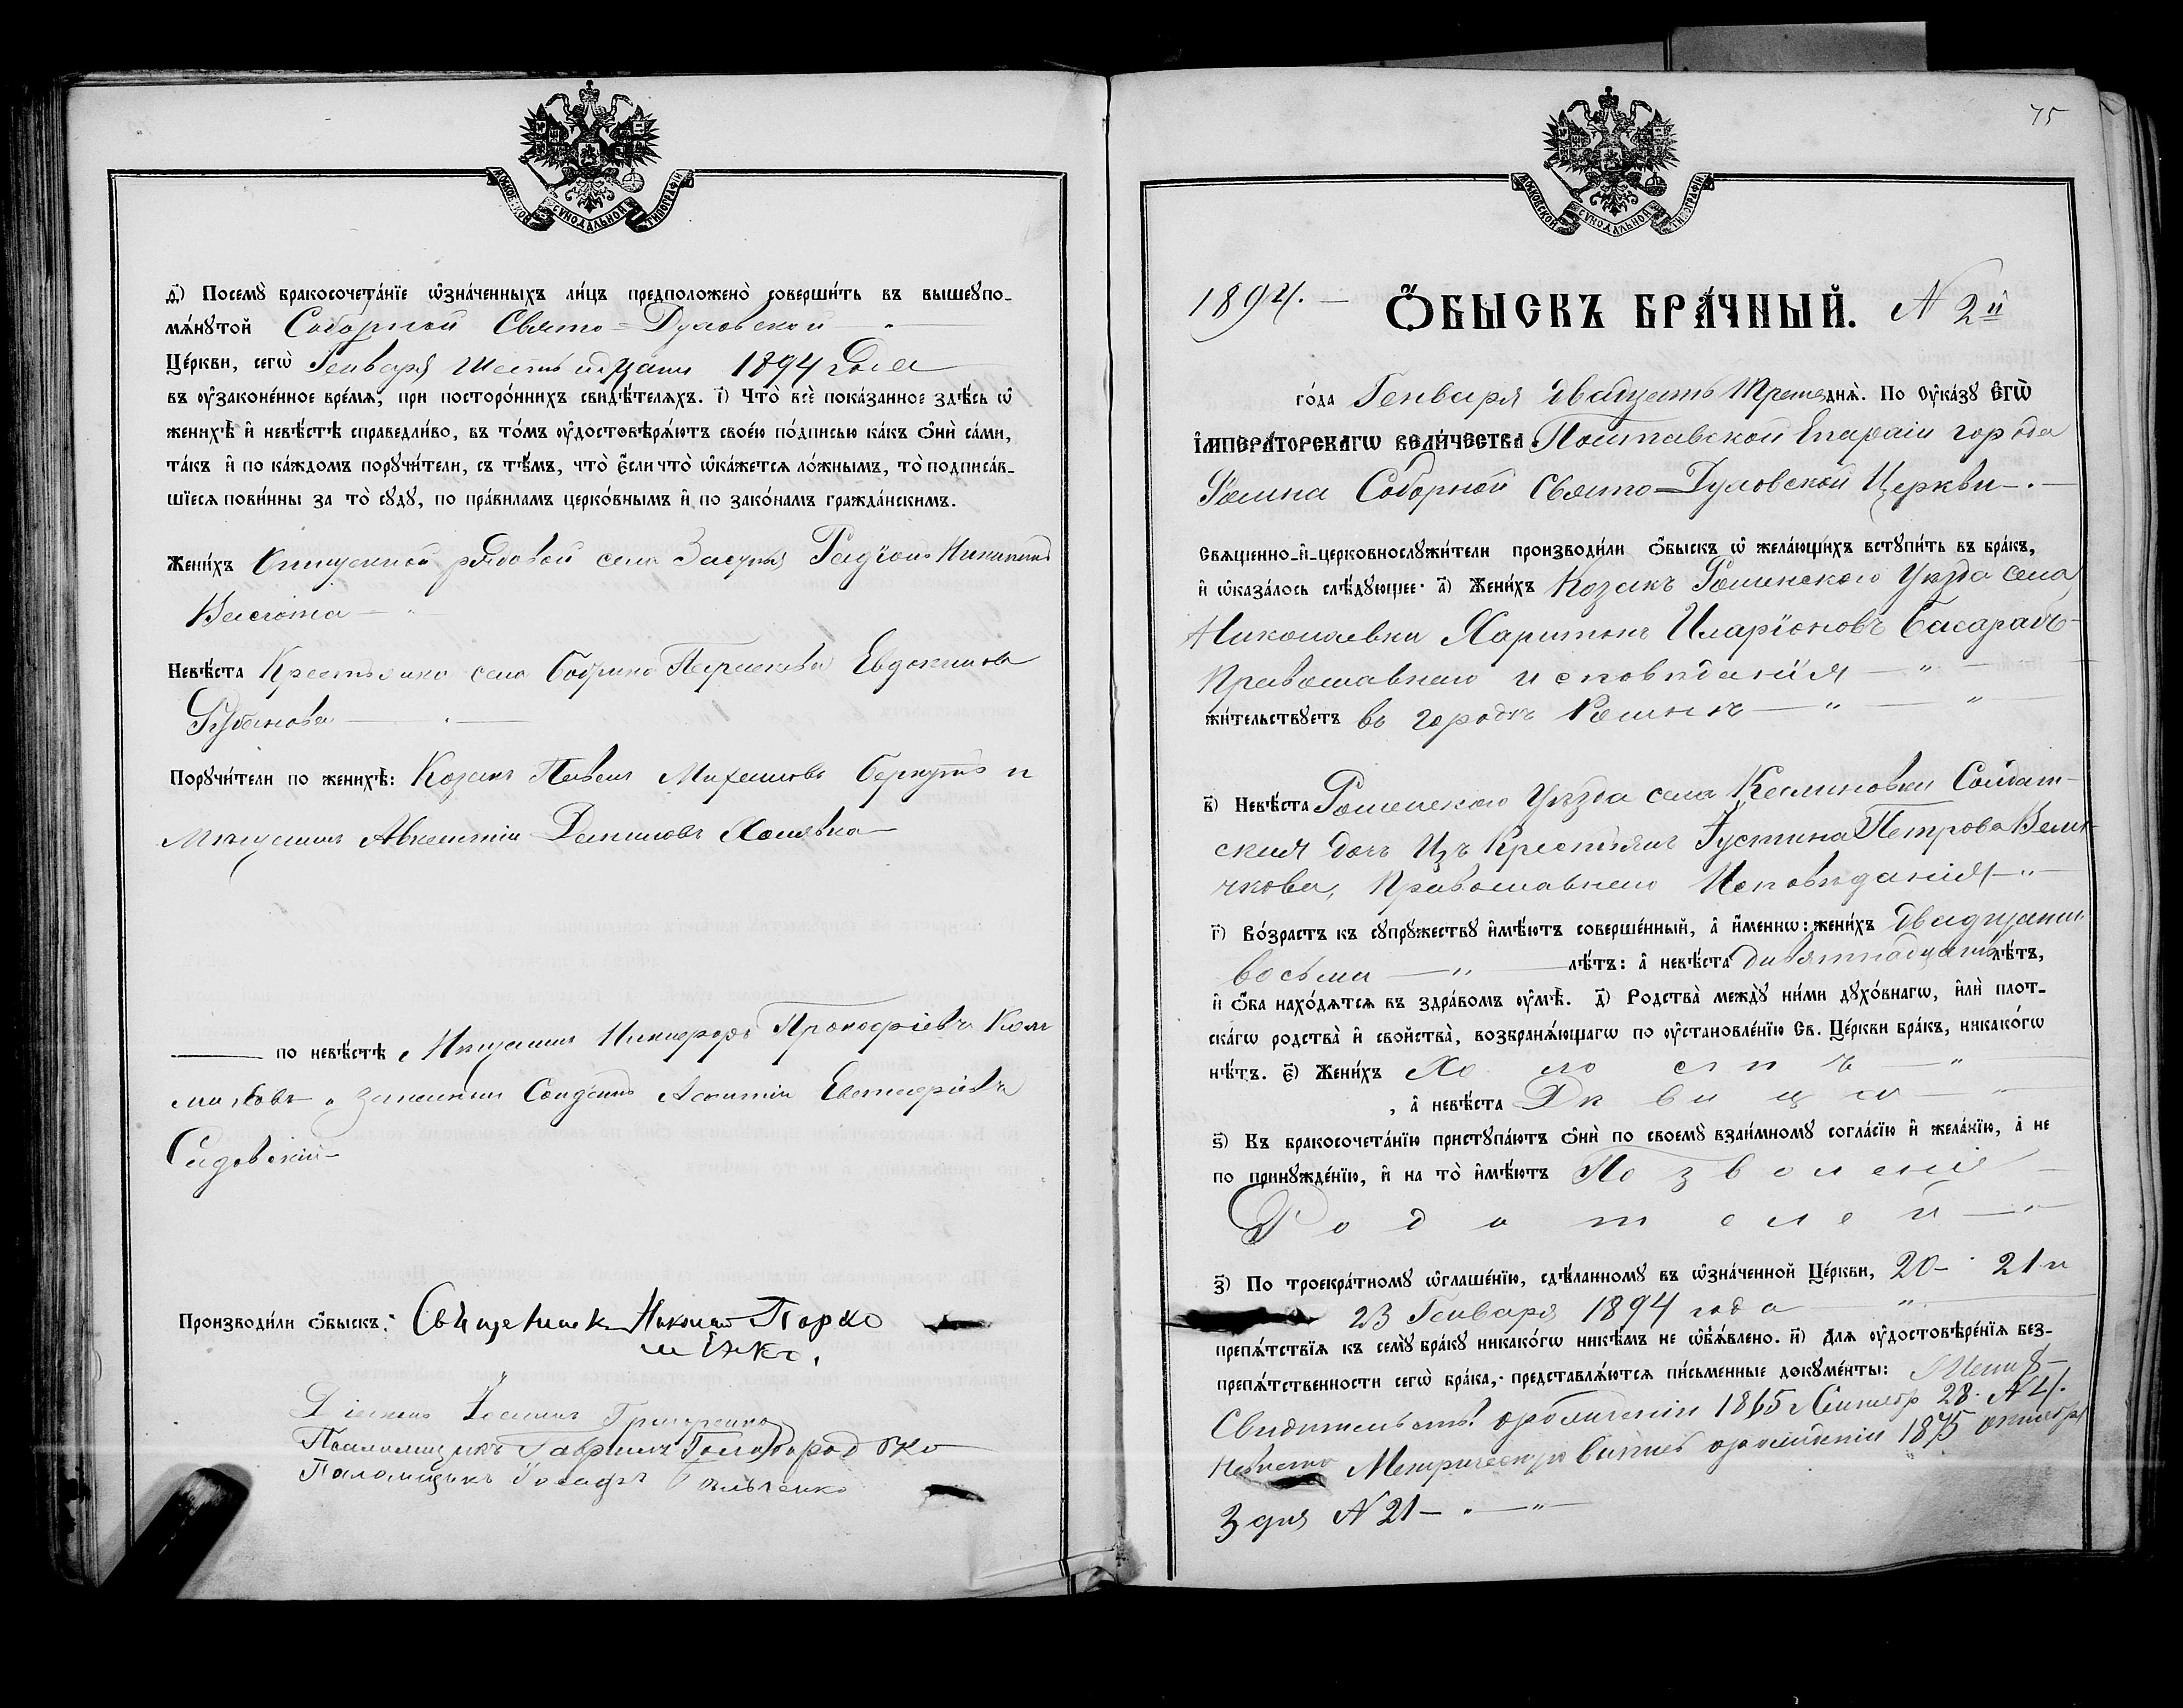 МОСКОВСКОЙ СѴНОДАЛЬНОЙ ТИПОГРАФІИ
д҃) Посемꙋ̀ бракосочета́нїе ѡ҆зна́ченныхъ ли́цъ предположено̀ соверши́ть въ вышеꙋпо-
мѧ́нꙋтой Соборной Свято-Духовской
Це́ркви, сегѡ̀ Генваря 1894 Года
въ ᲂу҆законе́нное вре́мѧ, при посторо́ннихъ свидѣ́телѧхъ. і҃) Что̀ всѐ пока́занное здѣ́сь ѡ҆
женихѣ̀ и҆ невѣ́стѣ справедли́во, въ то́мъ ᲂу҆достовѣрѧ́ютъ свое́ю по́дписью ка́къ ѻ҆нѝ са́ми,
та́къ и҆ по ка́ждомъ порꙋчи́тели, съ тѣ́мъ, что̀ є҆́сли что̀ ѡ҆ка́жетсѧ ло́жнымъ, то̀ подписа́в-
шїесѧ пови́нны за то̀ сꙋдꙋ̀, по пра́виламъ церко́внымъ и҆ по зако́намъ гражда́нскимъ.
Жени́хъ рядовой села Засулья
Невѣ́ста Крестьянка села Параскева Евдокимова
Порꙋчи́тели по женихѣ̀: Козакъ Павелъ Михайловъ Беркутъ и
Мѣщанинъ Авксентій
по невѣ́стѣ Мѣщанинъ Никифоръ Прокофіевъ Кли
и запасный Солдатъ Евстафіевъ
Садовскій
Производи́ли ѻ҆́быскъ: Священникъ Николай Пархо
менко.
Діаконъ Іоаннъ Григоренко
Псаломщикъ Гавріилъ Голобородько
Псаломщикъ Іосафъ
75
МОСКОВСКОЙ СѴНОДАЛЬНОЙ ТИПОГРАФІИ
1894. Ѻ҆́БЫСКЪ БРА́ЧНЫЙ. N 2й
го́да Генваря двадцать третьяго днѧ̀. По ᲂу҆ка́зꙋ Є҆ГѠ̀
І҆МПЕРА́ТОРСКАГѠ ВЕЛИ́ЧЕСТВА Полтавской Епархіи города
Ромна Соборной Свято-Духовской Церкви
Свѧщенно-и҆-церковнослꙋжи́тели производи́ли ѻ҆́быскъ ѡ҆ жела́ющихъ встꙋпи́ть въ бра́къ,
и҆ ѡ҆каза́лось слѣ́дꙋющее: а҃) Жени́хъ Козакъ Роменскаго Уѣзда села
Николаевки Харитонъ Иларіоновъ Басараб
Православнаго исповѣданія
жи́тельствꙋетъ въ городѣ Ромнѣ
в҃) Невѣ́ста Роменскаго Уѣзда села Калиновки Солдат-
ская дочь изъ Крестьянъ Іустина Петрова Велич-
кова, Православнаго Исповѣданія
г҃) Во́зрастъ къ сꙋпрꙋ́жествꙋ и҆мѣ́ютъ соверше́нный, а҆ и҆́меннѡ: жени́хъ двадцати
восьми лѣ́тъ: а҆ невѣ́ста девятнадцати лѣ́тъ,
и҆ ѻ҆́ба нахо́дѧтсѧ въ здра́вомъ ᲂу҆мѣ̀. д҃) Родства̀ междꙋ̀ ни́ми дꙋхо́внагѡ, и҆лѝ плот-
ска́гѡ родства̀ и҆ свойства̀, возбранѧ́ющагѡ по ᲂу҆становле́нїю Св. Це́ркви бра́къ, никако́гѡ
нѣ́тъ. є҃) Жени́хъ Холостъ
, а҆ невѣ́ста Дѣвица
ѕ҃) Къ бракосочета́нїю пристꙋпа́ютъ ѻ҆нѝ по своемꙋ̀ взаи́мномꙋ согла́сїю и҆ жела́нїю, а҆ не
по принꙋжде́нїю, и҆ на то̀ и҆мѣ́ютъ Позволеніе
Родителей
з҃) По троекра́тномꙋ ѡ҆глаше́нїю, сдѣ́ланномꙋ въ ѡ҆зна́ченной Це́ркви, 20 21 и
23 Генваря 1894 года
препѧ́тствїѧ къ семꙋ̀ бра́кꙋ никако́гѡ никѣ́мъ не ѡ҆б̾ѧ́влено. и҃) Длѧ ᲂу҆достовѣре́нїѧ без-
препѧ́тственности сегѡ̀ бра́ка, представлѧ́ютсѧ пи́сьменные докꙋме́нты:
Свидѣтельство о рожденіи 1865 Сентябр 28 N 4.
Невѣста Метрическую о рожденіи 1875 октября
3 дня N 21